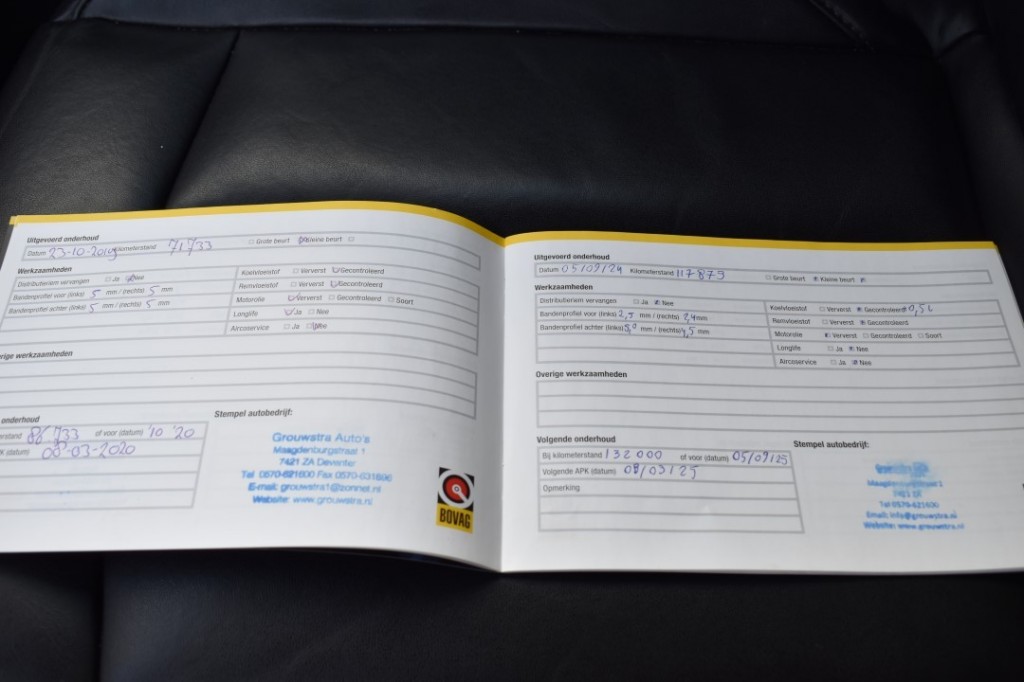 Uitgevoerd onderhoud
Datum 23-10-2019 Kilometerstand 71733 Grote beurt Kleine beurt
Werkzaamheden
Distributieriem vervangen Ja Nee
Bandenprofiel voor (links) 5 mm / (rechts) 5 mm
Bandenprofiel achter (links) 5 mm / (rechts) 5 mm
Koelvloeistof Ververst Gecontroleerd
Remvloeistof Ververst Gecontroleerd
Motorolie Ververst Gecontroleerd Soort
Longlife Ja Nee
Aircoservice Ja Nee
rige werkzaamheden
onderhoud
erstand 86733 of voor (datum) '10 '20
K (datum) 08-03-2020
Stempel autobedrijf:
Grouwstra Auto's
Maagdenburgstraat 1
7421 ZA Deventer
Tel 0570-621600 Fax 0570-631606
E-mail: grouwstra1@zonnet.nl
Website: www.grouwstra.nl
BOVAG
Uitgevoerd onderhoud
Datum 05/09/24 Kilometerstand 117873 Grote beurt Kleine beurt
Werkzaamheden
Distributieriem vervangen Ja Nee
Bandenprofiel voor (links) 2,5 mm / (rechts) 2,4 mm
Bandenprofiel achter (links) 5,0 mm / (rechts) 4,5 mm
Koelvloeistof Ververst Gecontroleerd 0,5L
Remvloeistof Ververst Gecontroleerd
Motorolie Ververst Gecontroleerd Soort
Longlife Ja Nee
Aircoservice Ja Nee
Overige werkzaamheden
Volgende onderhoud
Bij kilometerstand 132000 of voor (datum) 05/09/25
Volgende APK (datum) 08/03/25
Opmerking
Stempel autobedrijf:
Maagdenburgstraat 1
Tel 0570-621600
Email: info@grouwstra.nl
Website: www.grouwstra.nl